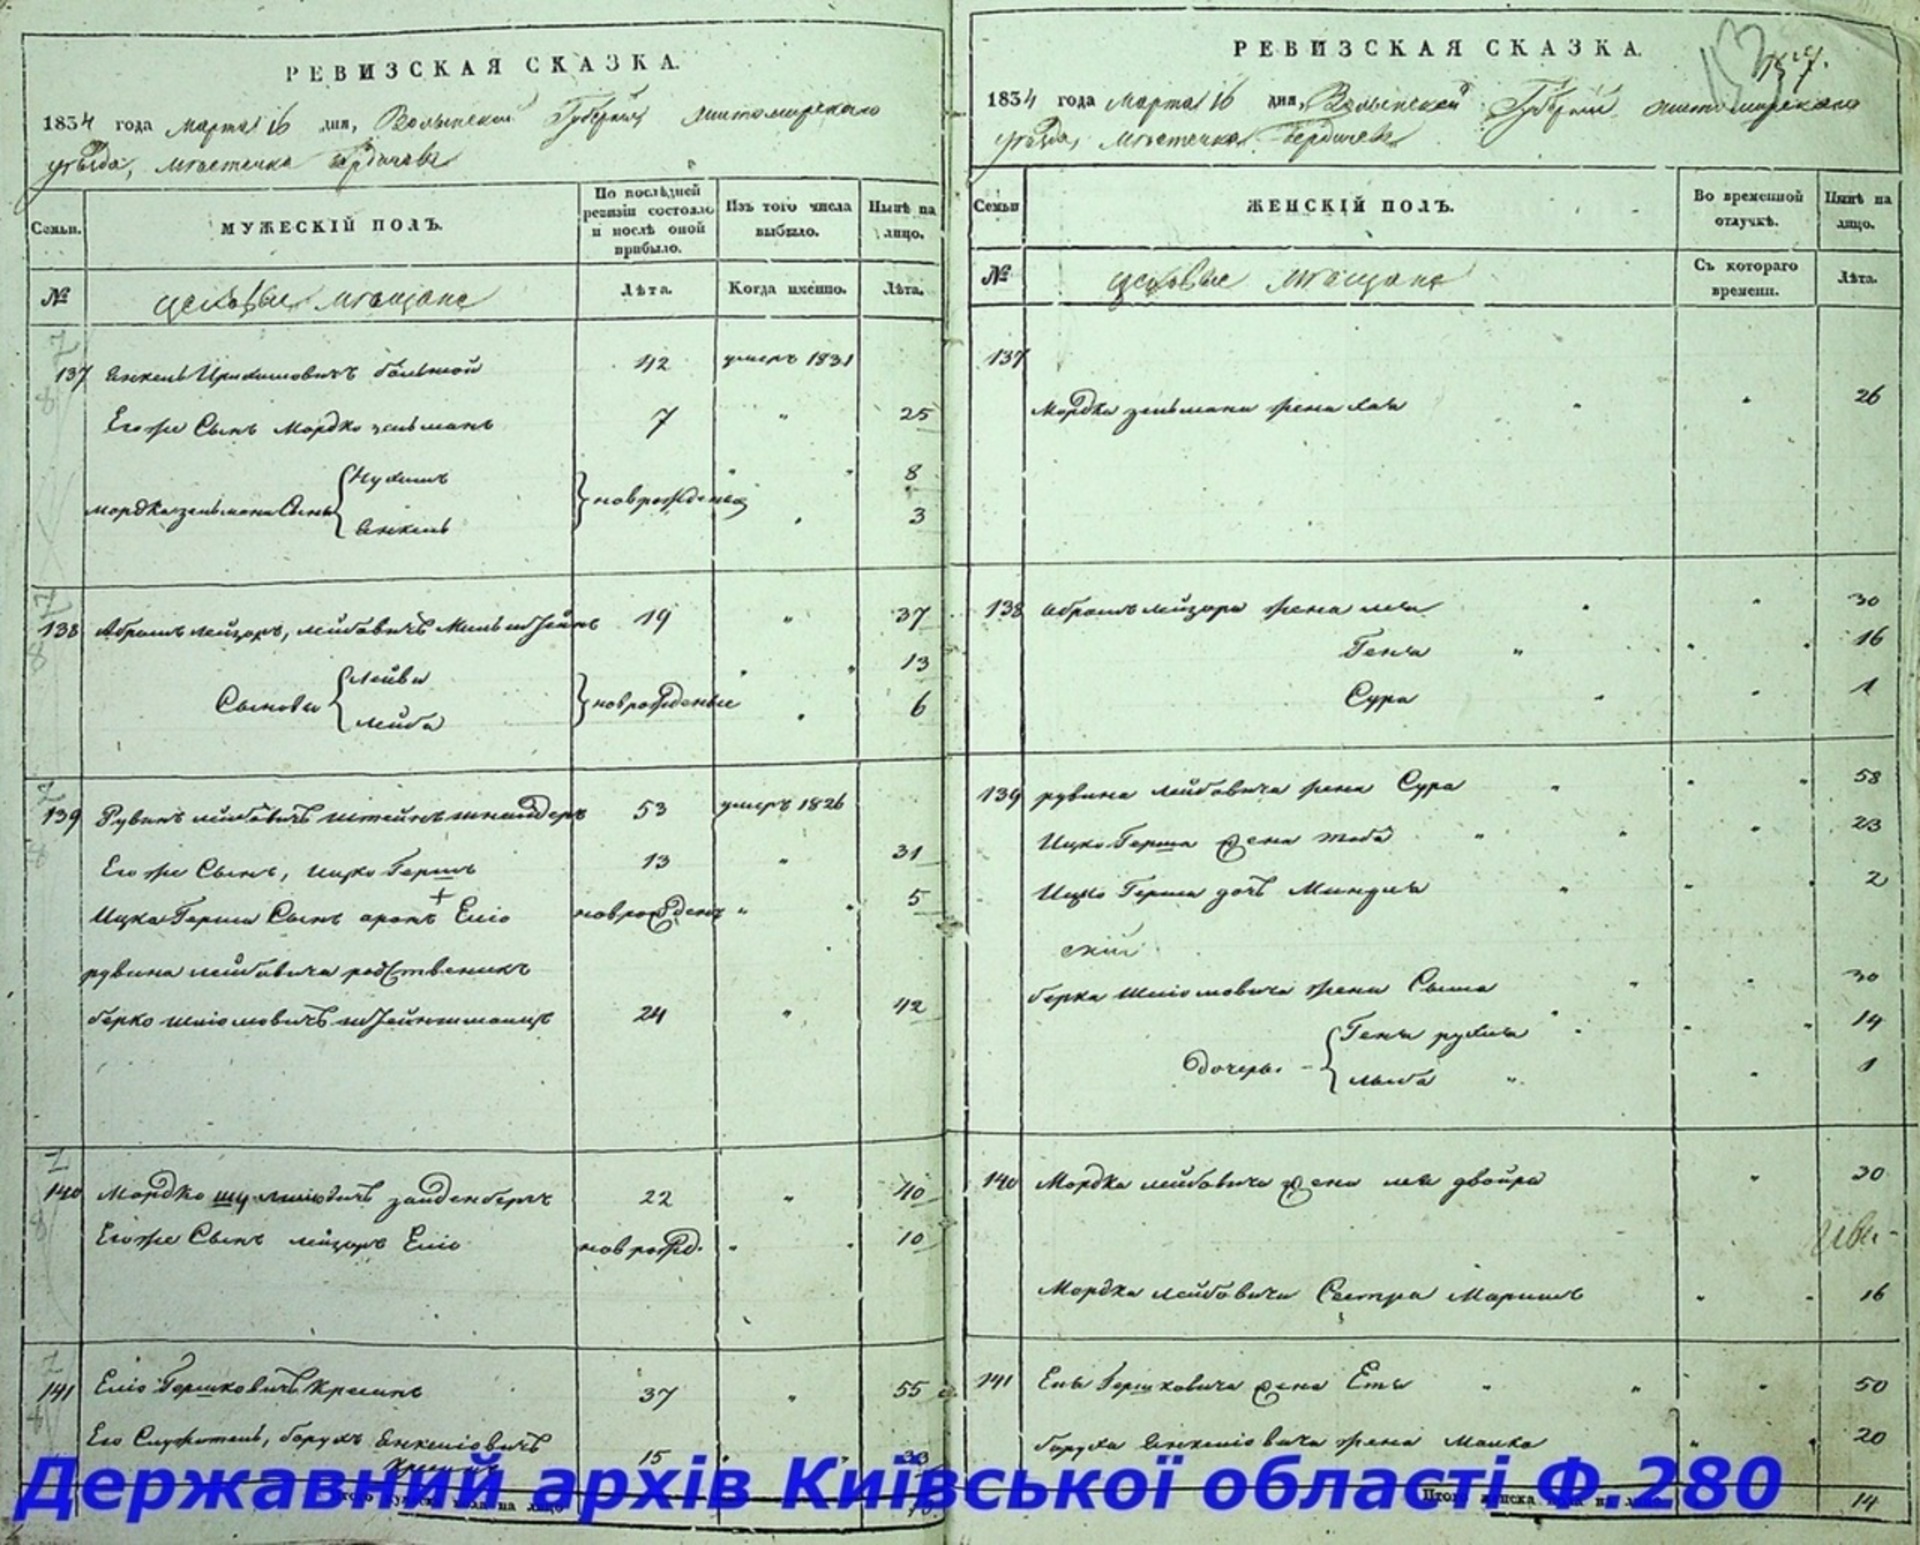 РЕВИЗСКАЯ СКАЗКА.
1834 года Марта 16 дня, Волынской Губернии Житомирскаго
уѣзда, мѣстечка Бердичева
Семьи.
МУЖЕСКІЙ ПОЛЪ.
По послѣдней ревизіи состояло и послѣ оной прибыло.
Изъ того числа выбыло.
Нынѣ на лицо.
№
цеховые мѣщане
Лѣта.
Когда именно.
Лѣта.
137 Янкель 42 умеръ 1831
Его же Сынъ Мордко зельманъ 7 " 25
Нухимъ " " 8
Мордка зельмана Сыны новрожденыя
Янкель " 3
138 Абрамъ лейзоръ, лейбовичъ 19 " 37
Лейви " " 13
Сыновья новрожденые
лейба " 6
139 Рувинъ лейбовичъ штейнъшнайдеръ 53 умеръ 1826
Его же Сынъ, Ицко Гершъ 13 " 31
Ицка Герша Сынъ аронъ Еліо новрожденъ " " 5
рувина лейбовича родственикъ
берко шліомовичъ 24 " 42
140 Мордко зайденбергъ 22 " 40
Его же Сынъ лейзоръ Еліо новрожд. " " 10
141 Еліо Гершковичъ 37 " 55
Его Служитель, барухъ Янкеліовичъ
15 " " 33
РЕВИЗСКАЯ СКАЗКА.
1834 года Марта 16 дня, Волынской Губерніи Житомирскаго
уѣзда, мѣстечка Бердичева
Семьи
ЖЕНСКІЙ ПОЛЪ.
Во временной отлучкѣ.
Нынѣ на лицо.
№
цеховые мѣщане
Съ котораго времени.
Лѣта.
137
Мордка зельмана жена хая " " 26
138 Абрамъ лейзора жена лея " " 30
Геня " " " 16
Сура " " 1
139 рувина лейбовича жена Сура " " " 58
Ицко Герша жена тоба " " " 23
Ицко Герша дочь Миндля " " " 2
берка шліомовича жена Сыма " " 30
Геня рухля " " " 14
дочеры
" " 1
140 Мордка лейбовича жена лея двойра " 30
Мордка лейбовича Сестра Маримъ " " 16
141 Ель Гершковича жена Етя " " " 50
баруха Янкеліовича жена Малка " " 20
14
Державний архів Київської області Ф.280